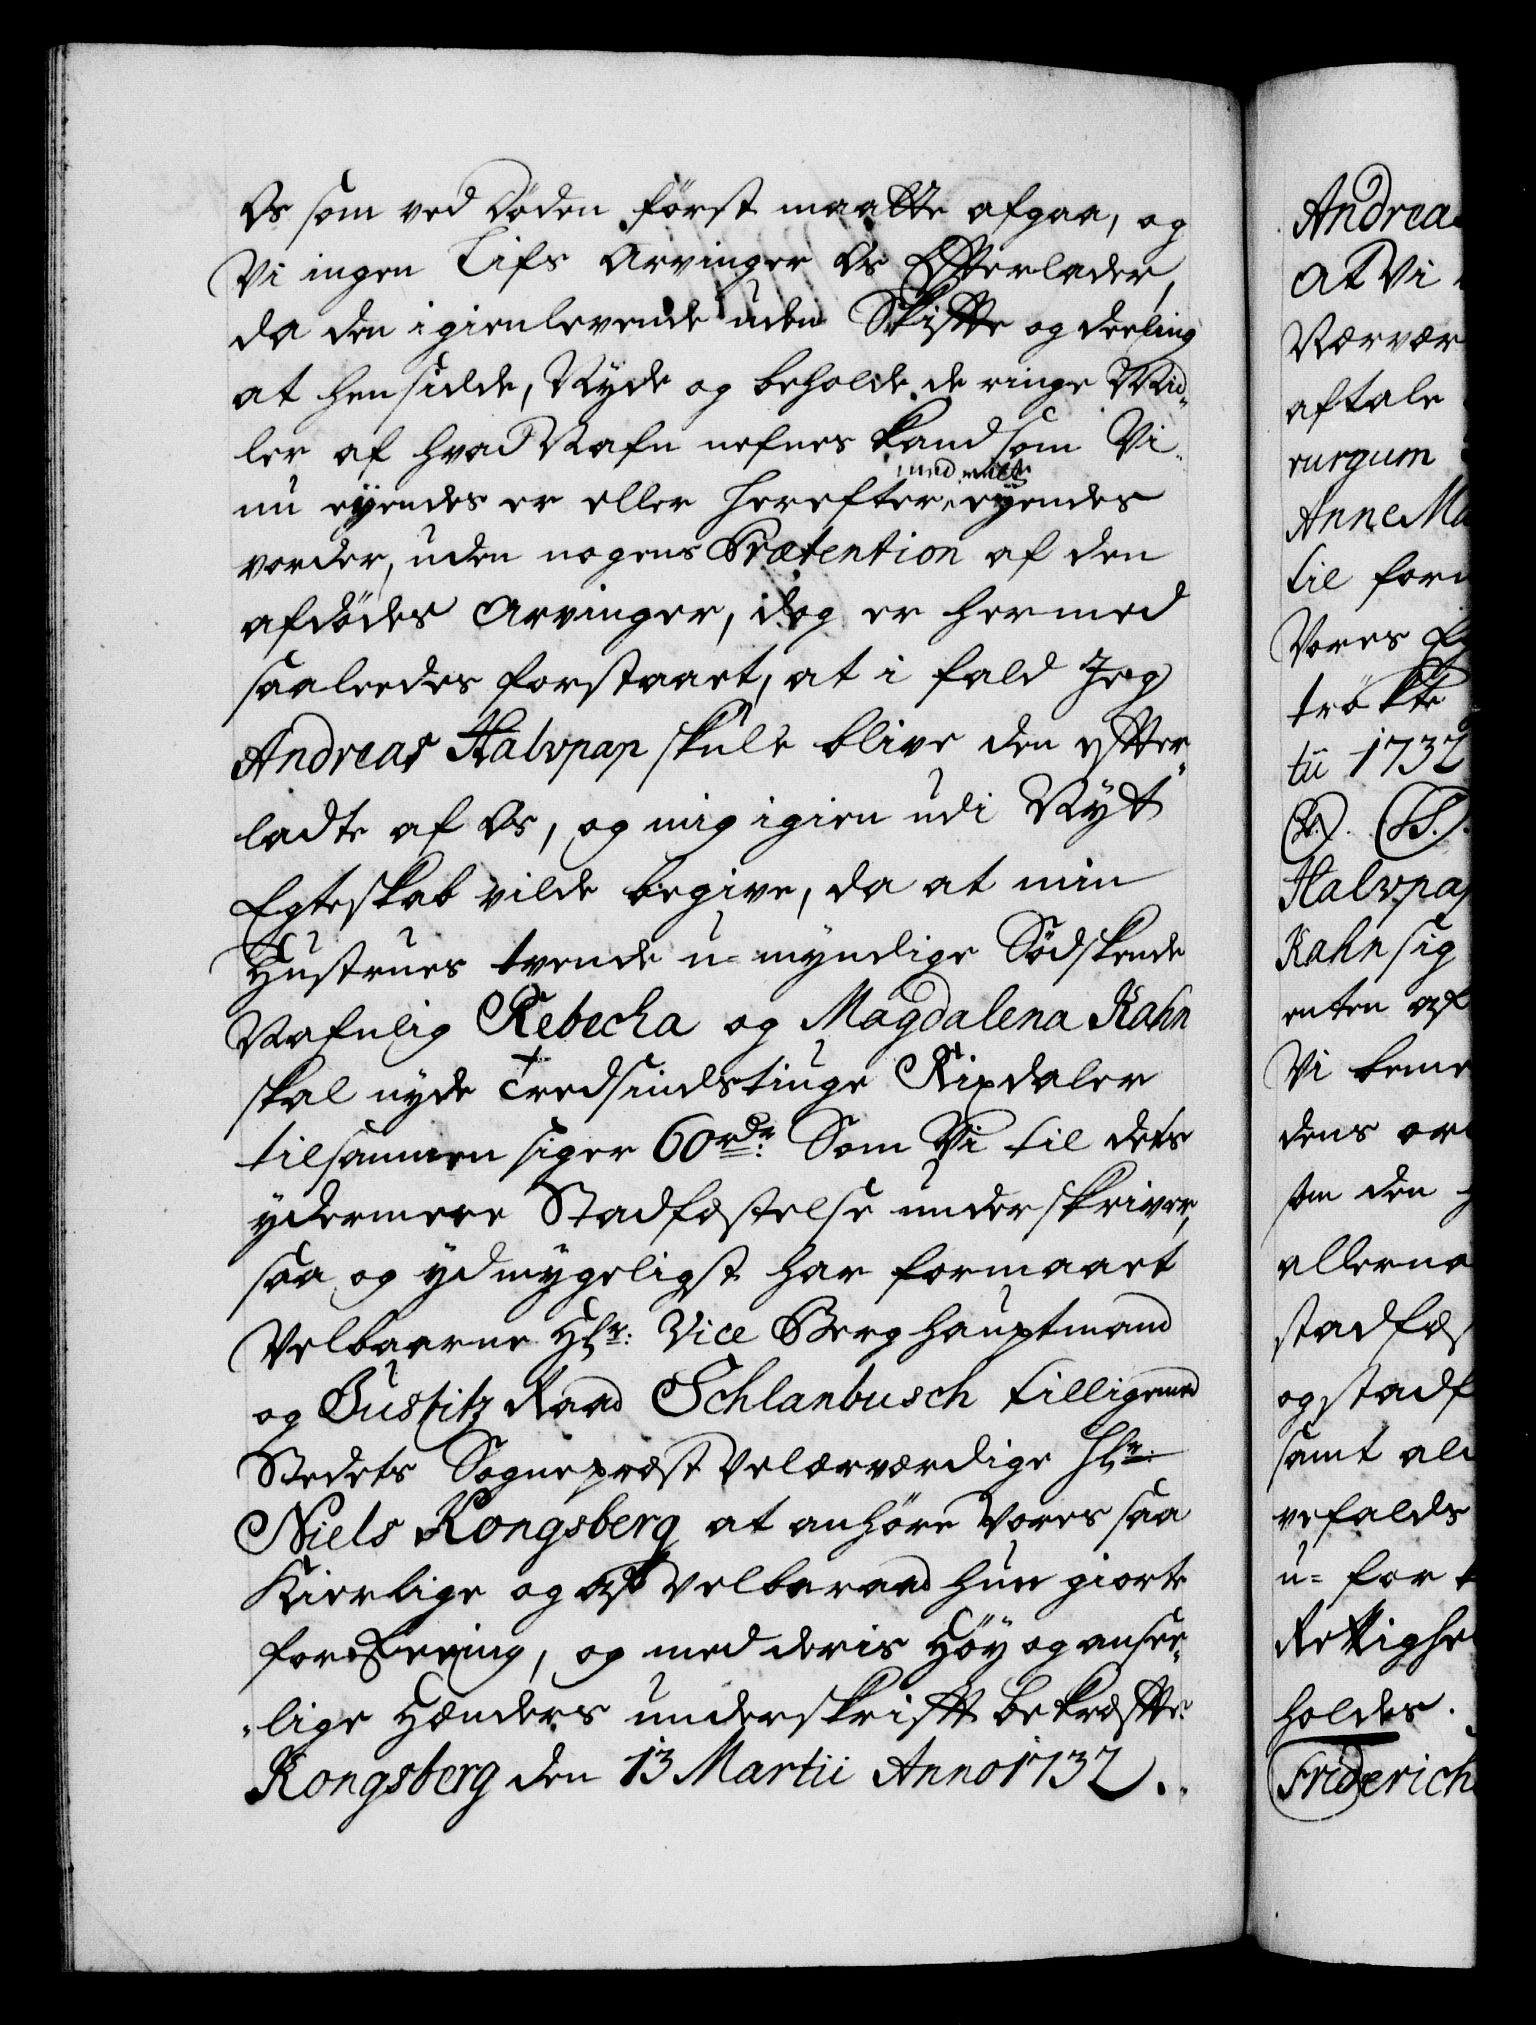 Os som ved Døden først maatte afgaa, og
Vi ingen Lifs Arvinger Os Efterlader,
da den igienlevende uden Skifte og deeling
at hensidde, Nyde og beholde de ringe Mid-
ler af hvad Nafn nefnes kand som Vi
nu eyendes er eller herefter eyendes
vorder, uden nogens Prætention af den
afdødes Arvinger, dog er hermed
saaleedes forstaaet, at i fald Jeg
Andreas Halvpap skule blive den efter-
ladte af Os, og mig igien udi Nyt
Egteskab vilde begive, da at min
Hustrues tvende u-myndige Sødskende
Nafnlig Rebecha og Magdalena Kahn
skal nyde Tredsindstiuge Rixdaler
tilsammen siger 60 rdr: Som Vi til dets
ydermere Stadfæstelse underskriver,
saa og ydmygeligst har formaaet
Velbaarne Hr: Vice Berghauptmand
og Justitz Raad Schlanbusch tilligemed
Stedets Sognepræst Velærværdige Hr:
Niels Kongsberg at anhöre Vores saa
Kierlige og af Velberaad hue giorte
foreEening, og med deris Höy og ansee-
-lige Hænders underskrift bekræfte.
Kongsberg den 13 Martii Anno 1732.
Andrea
At Vi
Nærvær
aftale
rurgum
Anne Ma
til for
Vores
trökte
tii 1732
(L.). (S.).
Halvpap
Kahn sig
enten af
Vi beme
dens or
som den
allerna
stadfæs
og stadf
samt al
vefalds
u-for
Rettighe
holdes.
Friderich